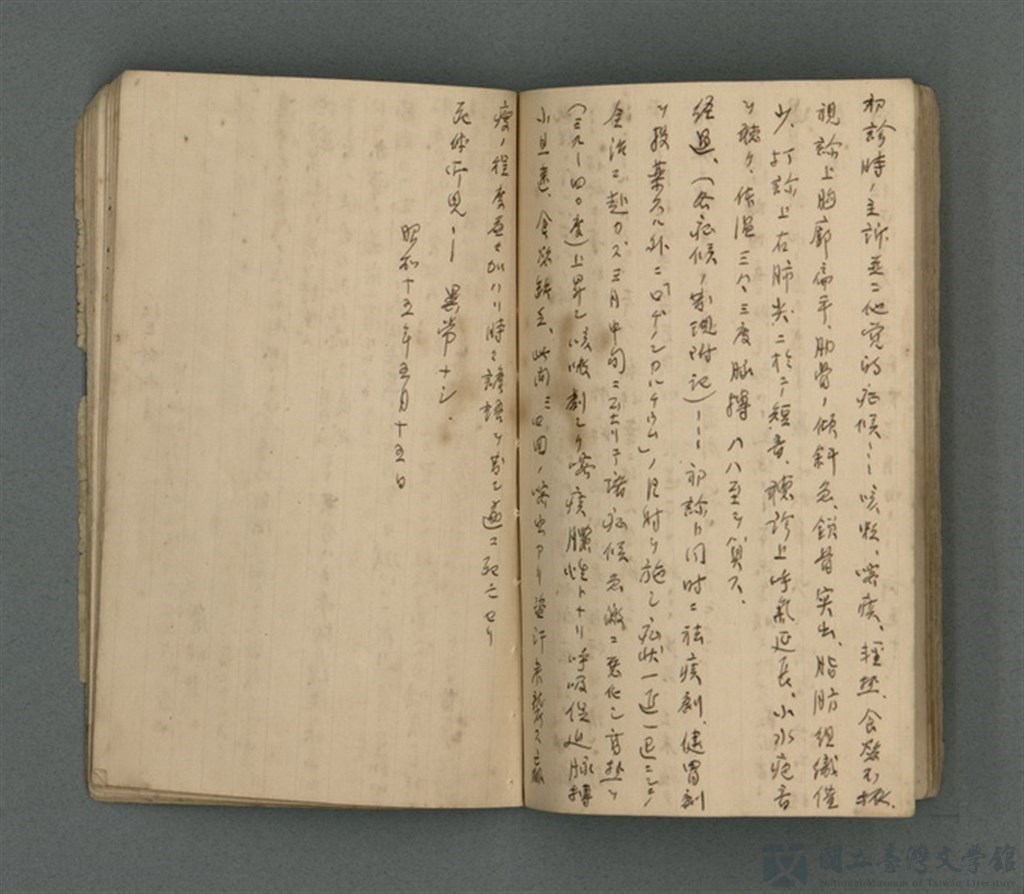 初診時ノ主訴並ニ他覚的症候……咳嗽、喀痰、軽熱、食慾不振、
視診上胸廓扁平、肋骨ノ傾斜急、鎖骨突出、脂肪組織僅
少、打診上右肺尖ニ於テ短音、聴診上呼氣延長、小水疱音
ヲ聴ク、体温三七、三度脈搏八八至ヲ算ス、
経過、(各症候ノ発現附記)……初診ト同時ニ祛痰剤、健胃剤
ヲ投薬スル外ニ「ロヂノンカルチウム」ノ注射ヲ施シ症状一進一退ニシテ
全治ニ赴カズ三月中旬ニ至リテ諸症候急激ニ悪化シ高熱ヲ
(三九—四〇度)上昇シ咳嗽劇シク喀痰膿性トナリ呼吸促迫脈搏
小且速、食慾缺乏、此間三四回ノ喀血アリ盗汗来襲ス羸
痩ノ程度益々加ハリ時々譫語ヲ発シ遂ニ死亡セリ
死体所見…… 異常ナシ.
昭和十五年五月十五日
國立臺灣文學館
National Museum of Taiwan Literature